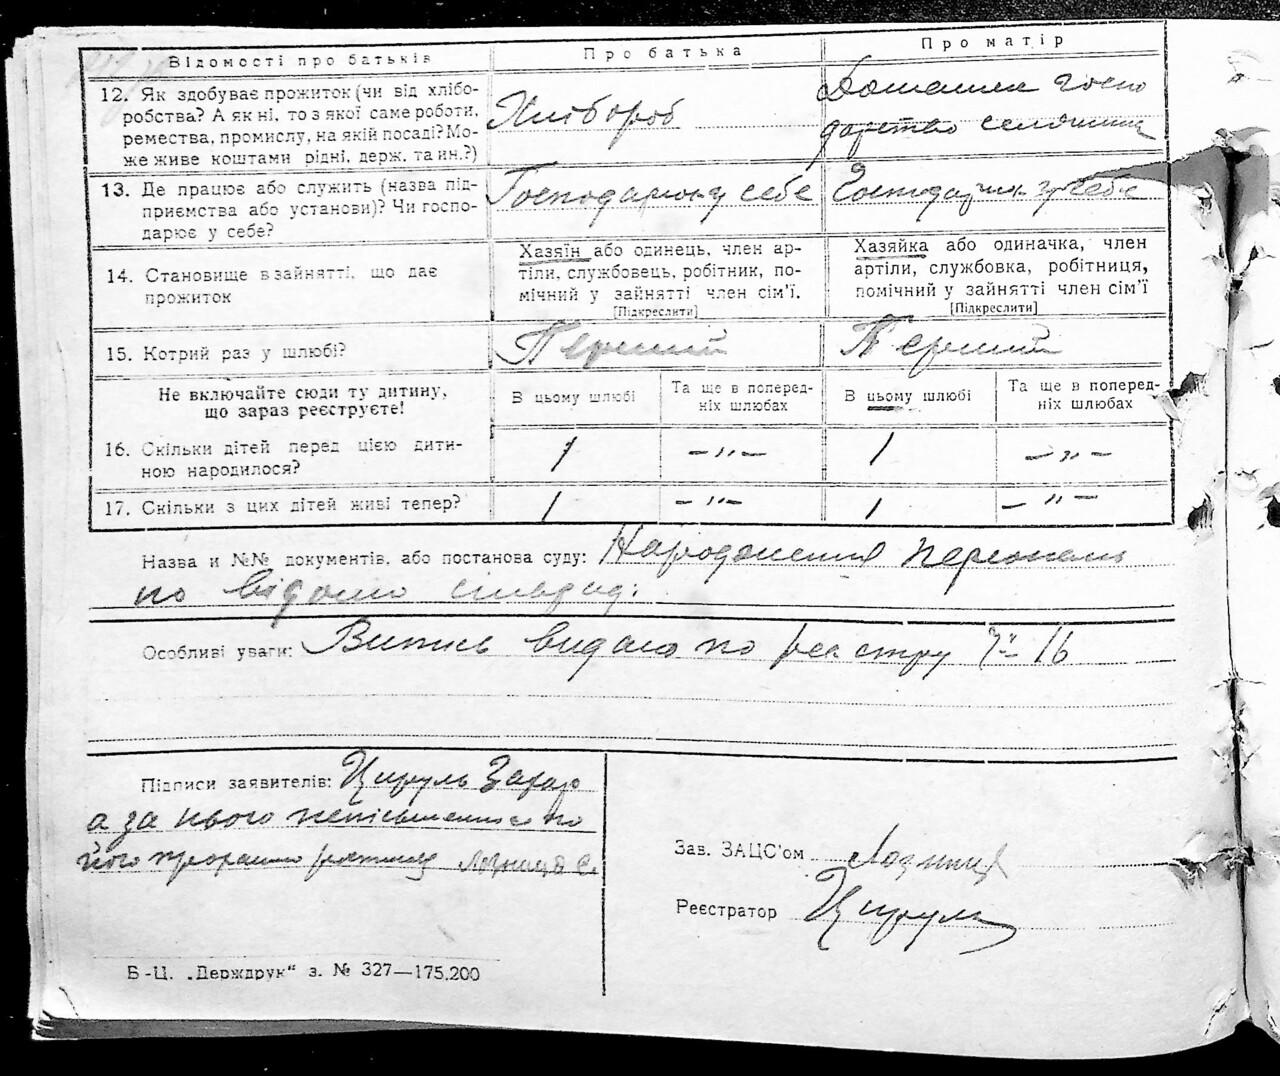 Відомості про батьків
Про батька
Про матір
12. Як здобуває прожиток (чи від хлібо-
робства? А як ні, то з якої саме роботи,
ремества, промислу, на якій посаді? Мо-
же живе коштами рідні, держ. та ин.?)
Хлібороб
Домашнє госпо
дарство селянин
13. Де працює або служить (назва під-
приємства або установи)? Чи госпо-
дарює у себе?
Господарює у себе
Господарює у себе
14. Становище в занятті, що дає
прожиток
Хазяїн або одинець, член ар-
тіли, службовець, робітник, по-
мічний у зайнятті член сім'ї.
[Підкреслити]
Хазяйка або одиначка, член
артіли, службовка, робітниця,
помічний у зайнятті член сім'ї
[Підкреслити]
15. Котрий раз у шлюбі?
Перший
Перший
Не включайте сюди ту дитину,
що зараз реєструєте!
В цьому шлюбі
Та ще в поперед-
ніх шлюбах
В цьому шлюбі
Та ще в поперед-
ніх шлюбах
16. Скільки дітей перед цією дити-
ною народилося?
1
—"—
1
—"—
17. Скільки з цих дітей живі тепер?
1
—"—
1
—"—
Назва и №№ документів, або постанова суду: Народження
по відомо сільрад.
Особливі уваги: Випись видано по реєстру № 16
Підписи заявителів: Цируль Захар
а за нього неписьменного по
його проханню Лозниця С.
Зав. ЗАЦС'ом Лозниця
Реєстратор Цируль
Б-Ц. „Держдрук" з. № 327—175.200